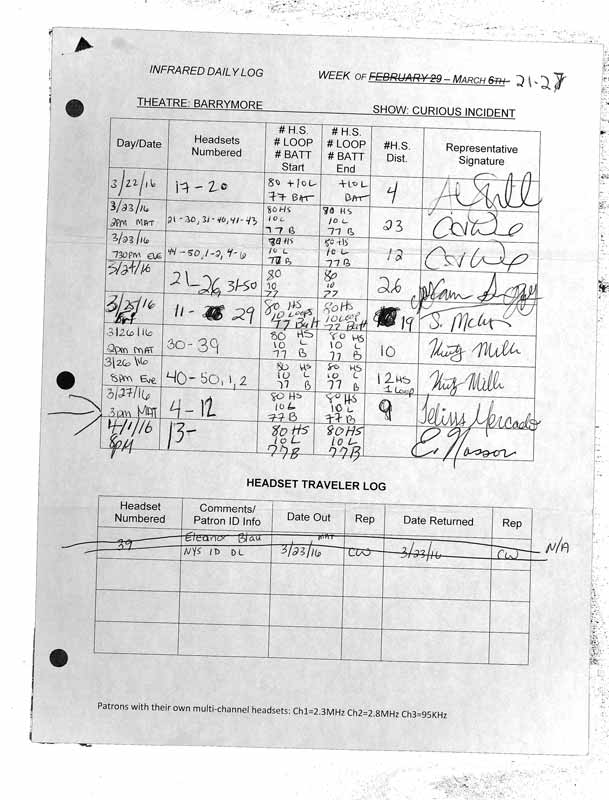 INFRARED DAILY LOG WEEK OF FEBRUARY 29 – MARCH 6TH 21-27
THEATRE: BARRYMORE SHOW: CURIOUS INCIDENT
Day/Date Headsets Numbered # H.S. # LOOP # BATT Start # H.S. # LOOP # BATT End #H.S. Dist. Representative Signature
3/22/16 17-20 80 +10L 77 BAT +10L BAT 4
3/23/16 2PM MAT 21-30, 31-40, 41-43 80HS 10L 77B 80 HS 10L 77B 23
3/23/16 730PM EVE 44-50, 1-2, 4-6 80HS 10L 77B 80HS 10L 77B 12
3/24/16 21-26, 31-50 80 10 77 80 10 77 26
3/25/16 11- 29 80 HS 10 Loops 77 Batt 80HS 10 Loop 77 Batt 19 S.
3/26/16 2pm MAT 30-39 80 HS 10 L 77 B 80 HS 10 L 77 B 10
3/26/16 8pm Eve 40-50, 1, 2 80 HS 10 L 77 B 80 HS 10 L 77 B 12HS 1 Loop
3/27/16 3pm MAT 4-12 80HS 10L 77B 80HS 10L 77B 9 Mercado
4/1/16 8pM 13- 80HS 10L 77B 80HS 10L 77B E. Nasson
HEADSET TRAVELER LOG
Headset Numbered Comments/ Patron ID Info Date Out Rep Date Returned Rep
39 Eleanor Blau NYS ID DL MAT 3/23/16 CW 3/23/16 CW N/A
Patrons with their own multi-channel headsets: Ch1=2.3MHz Ch2=2.8MHz Ch3=95KHz